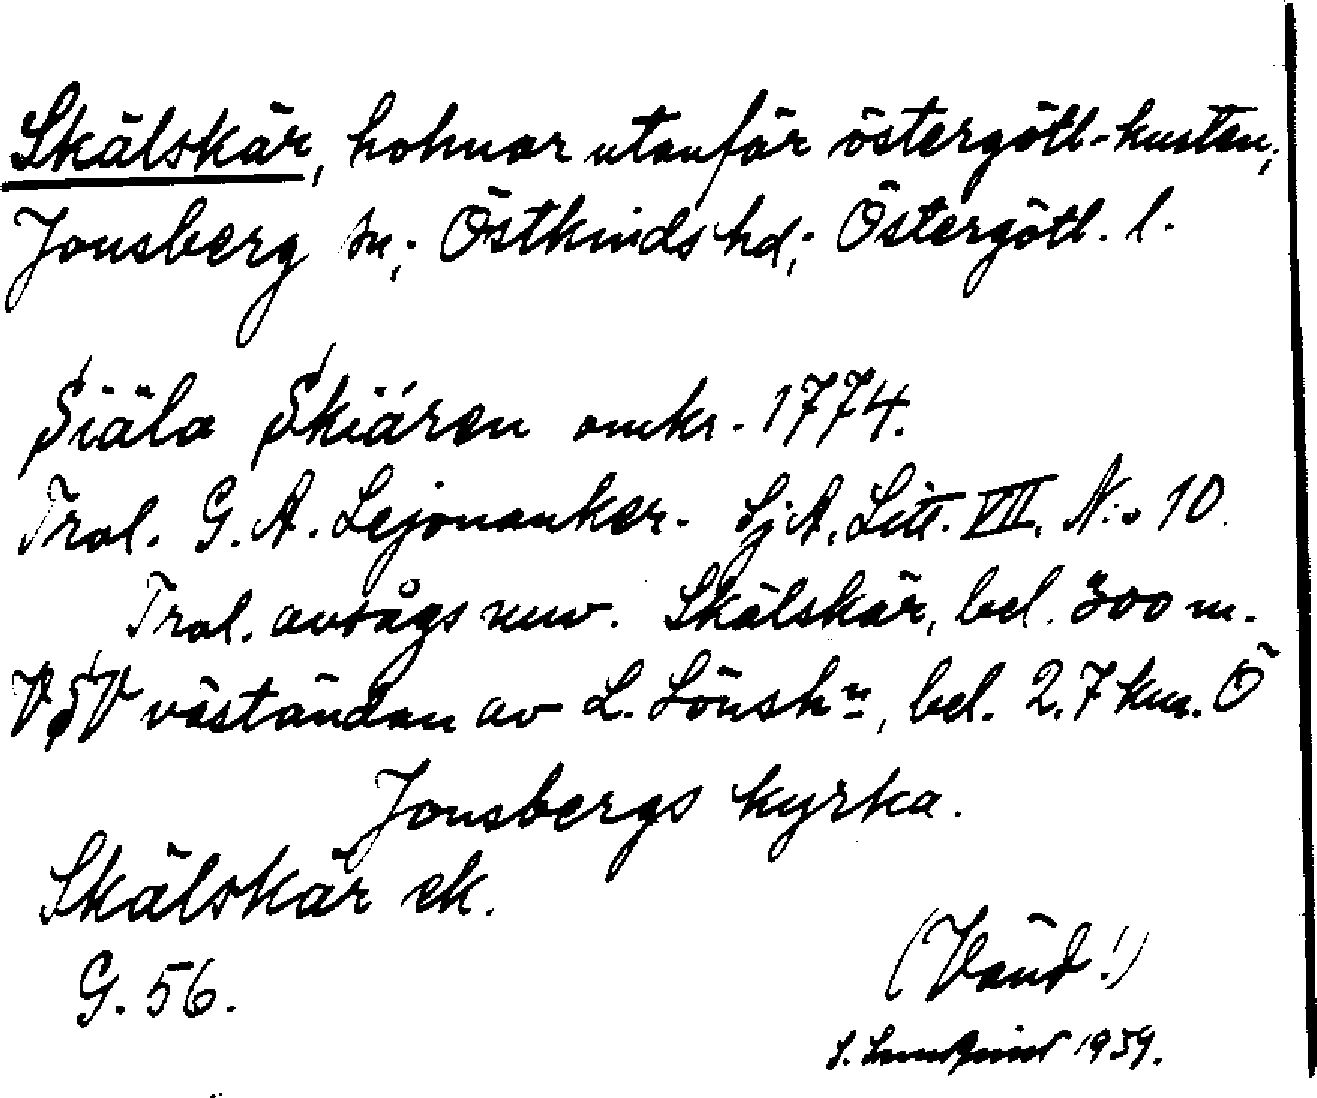 Skälskär, holmar utanför östergötl-kusten,
Jonsberg sn; Östkinds hd; Östergötl. l.
Siäla Skiären omkr. 1774.
Trol. G. A. Lejonanker. SjA. Litt. VII. N:o 10.
Trol. avsågs nuv. Skälskär, bel. 300 m.
VSV väständan av L. Lönshn, bel. 2.7 km. Ö
Jonsbergs kyrka.
Skälskär ek.
G. 56.
(Vänd!)
S. 1939.